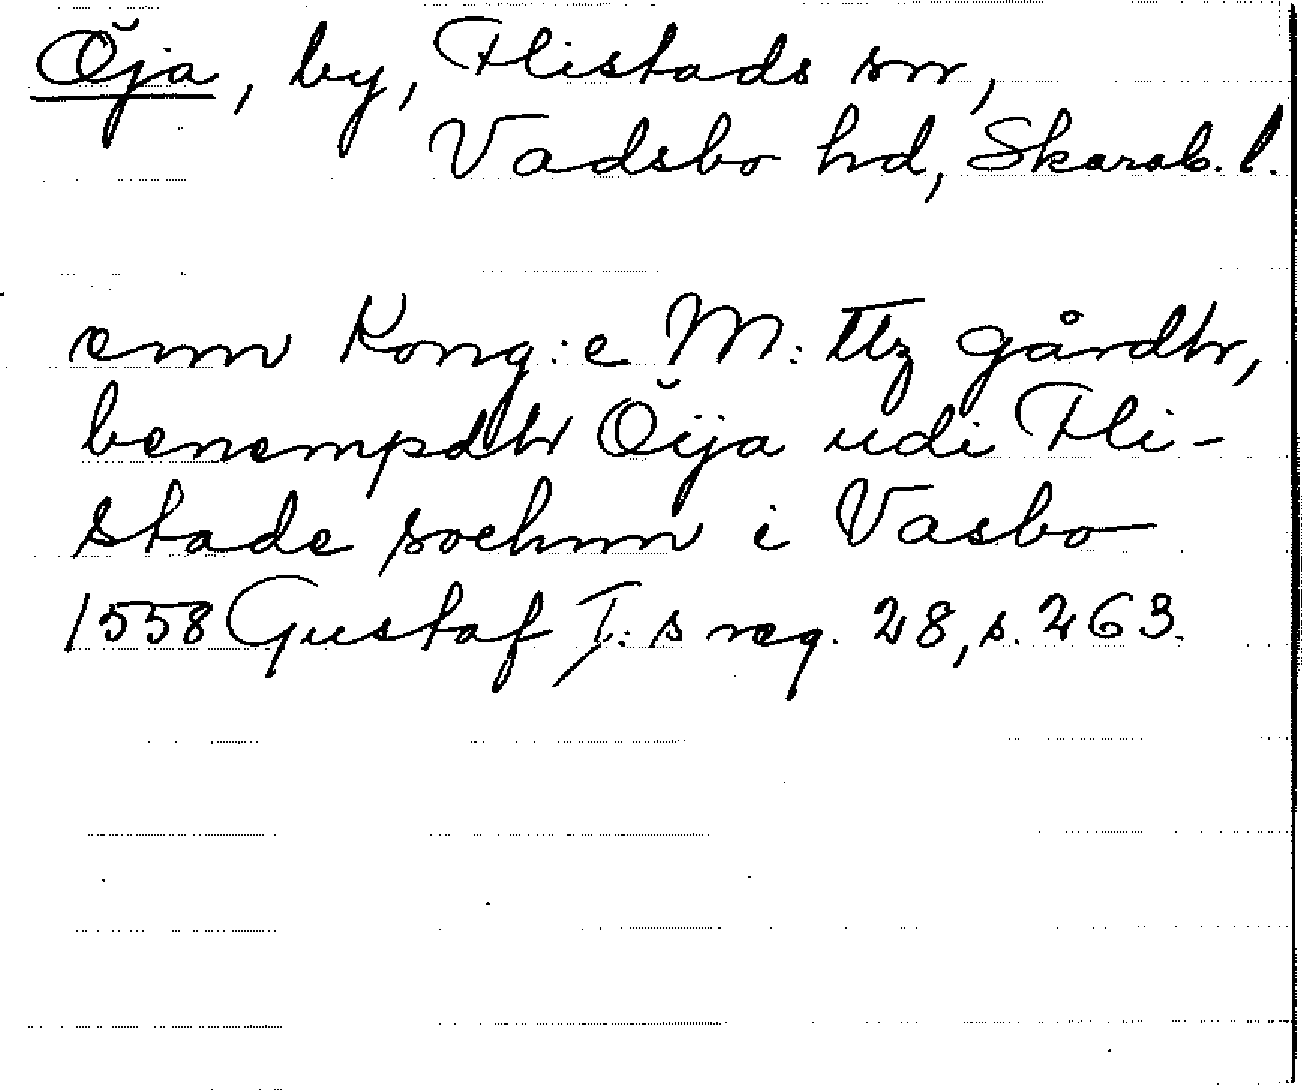 Öja, by, Flistads sn,
Vadsbo hd, Skarab. l.
enn Kong:e M:ttz gårdtr,
benempdtr Öija udi Fli-
stade sochnn i Vasbo
1558 Gustaf I:s reg. 28, s. 263.